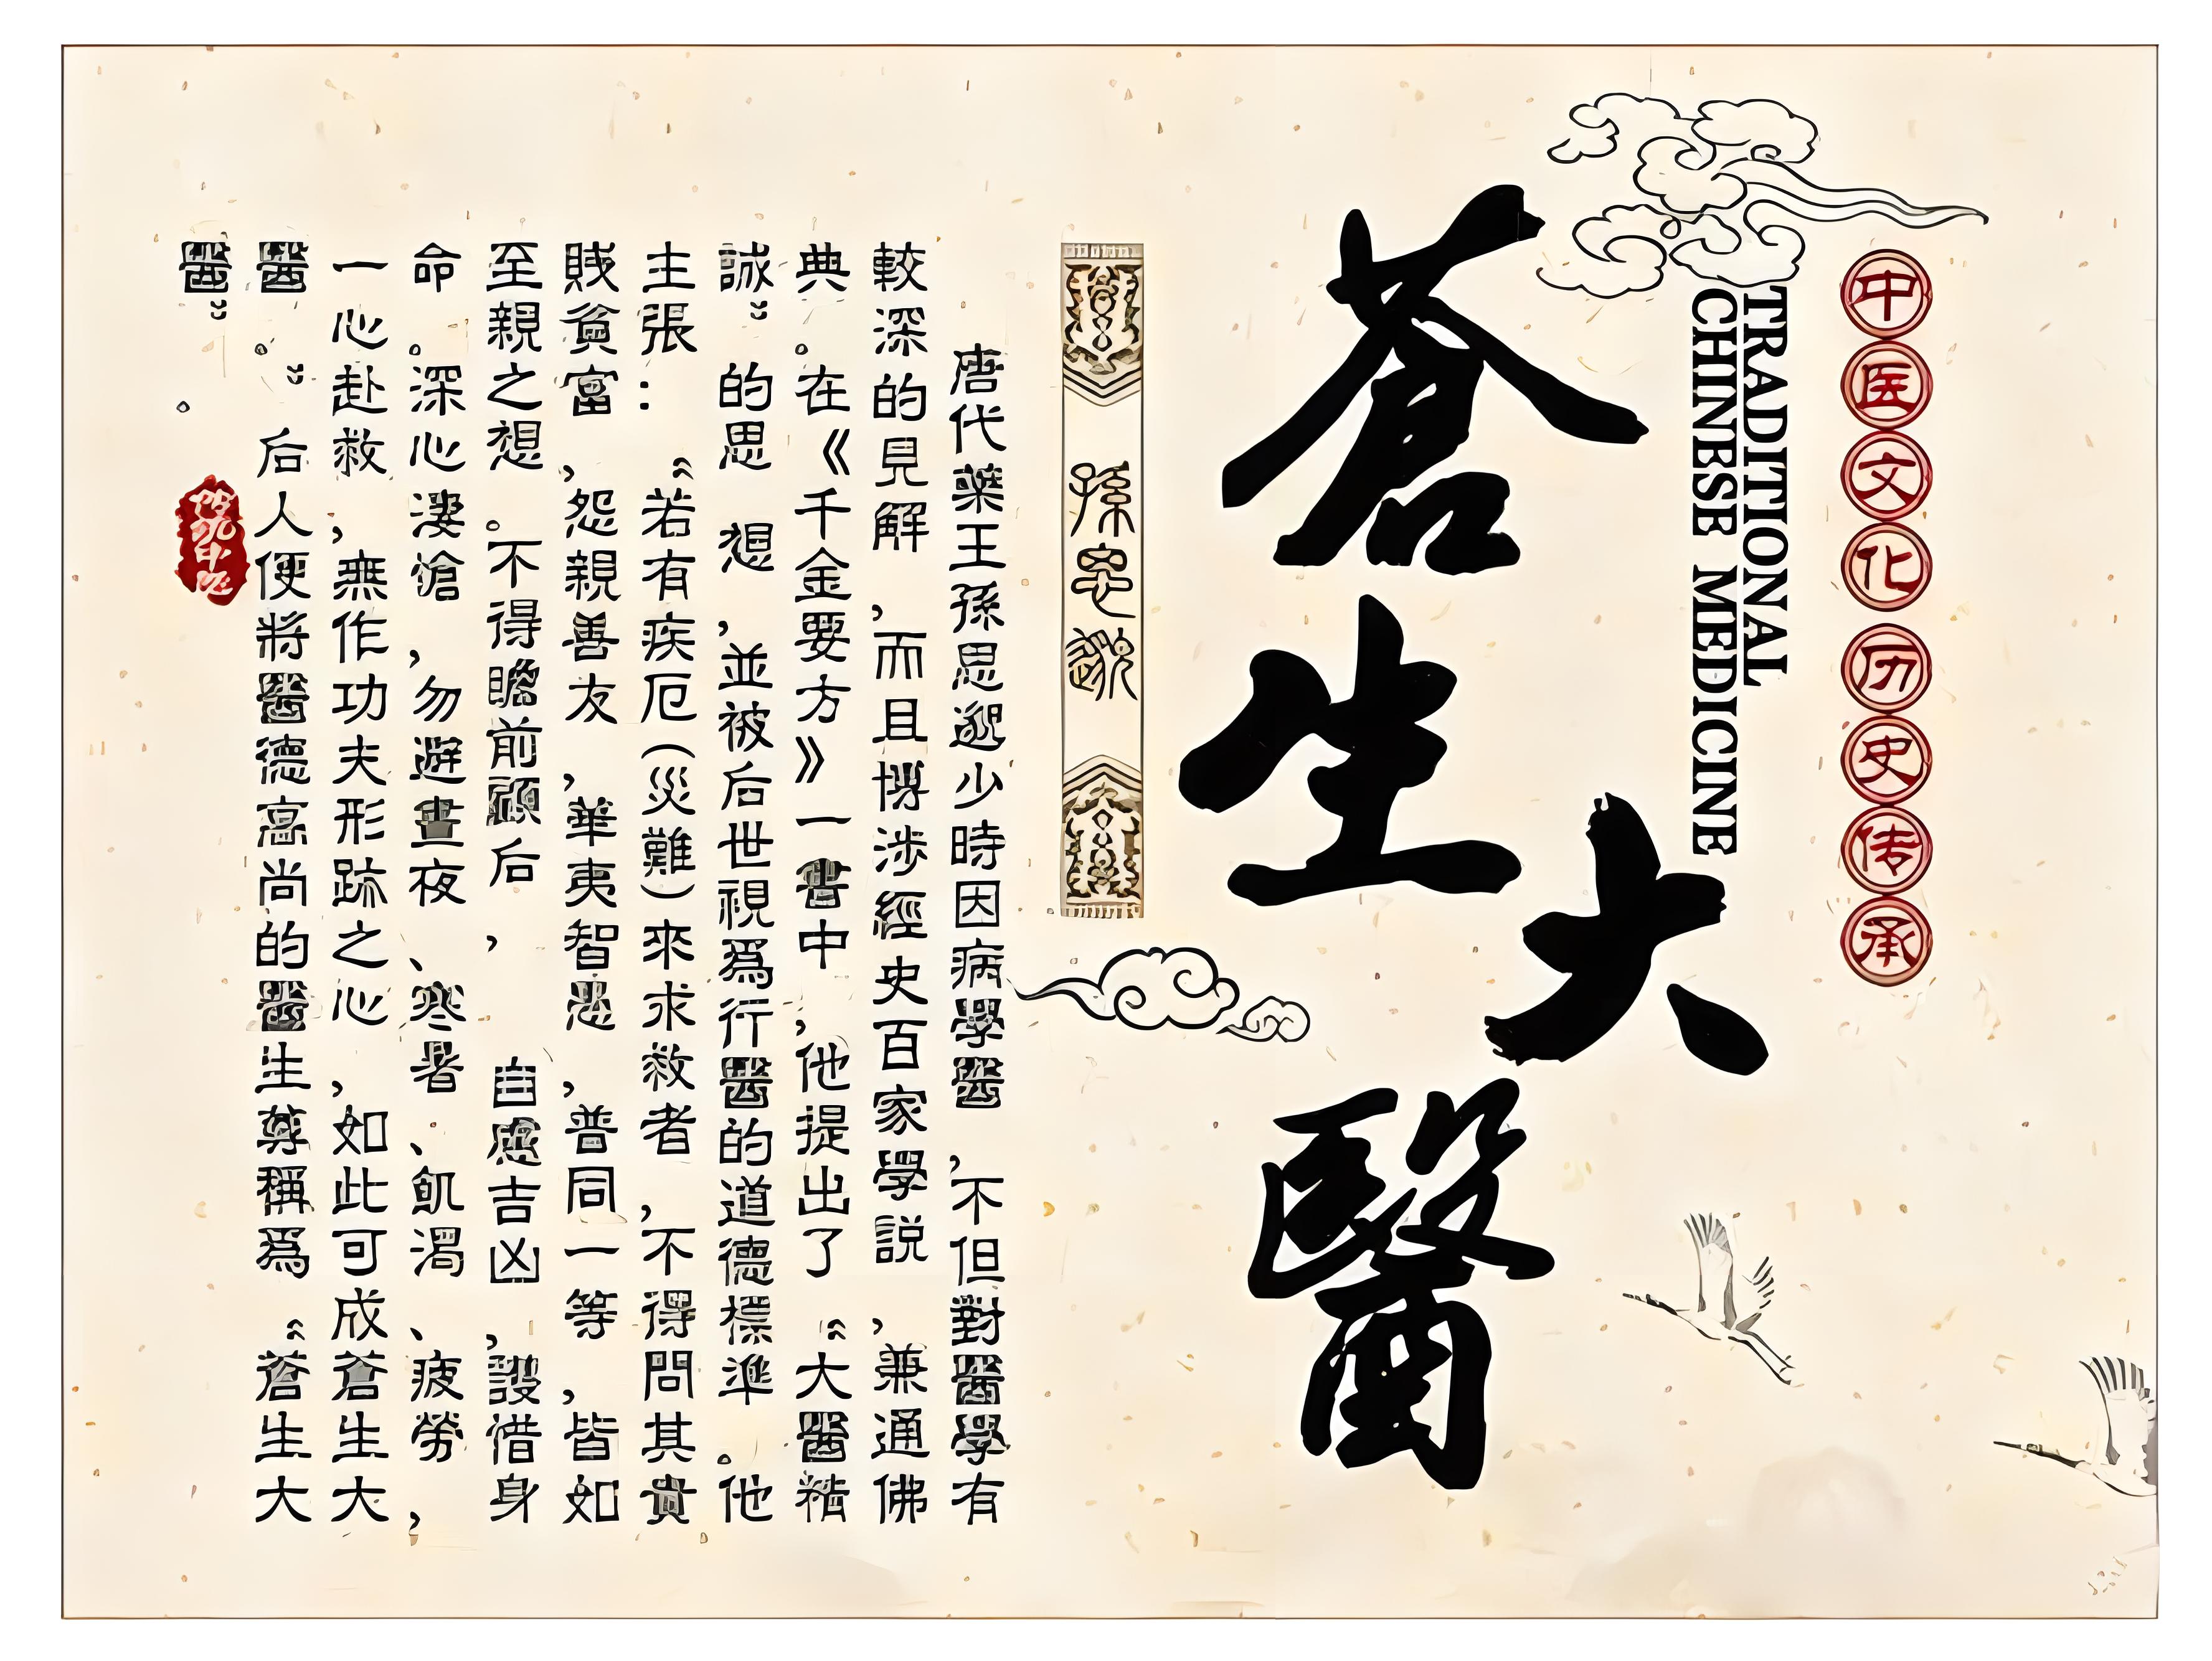 中医文化 历史传承
TRADITIONAL
CHINESE MEDICINE
蒼生大醫
孫思邈
唐代藥王孫思邈少時因病學醫，不但對醫學有
較深的見解，而且博涉經史百家學説，兼通佛
典。在《千金要方》一書中，他提出了“大醫精
誠”的思想，並被后世視爲行醫的道德標準。他
主張：“若有疾厄（災難）來求救者，不得問其貴
賎貧富，怨親善友，華夷智愚，普同一等，皆如
至親之想。不得瞻前顧后，自慮吉凶，護惜身
命。深心淒愴，勿避晝夜、寒暑、飢渴、疲勞，
一心赴救，無作功夫形跡之心，如此可成蒼生大
醫。”后人便將醫德高尚的醫生尊稱爲“蒼生大
醫”。